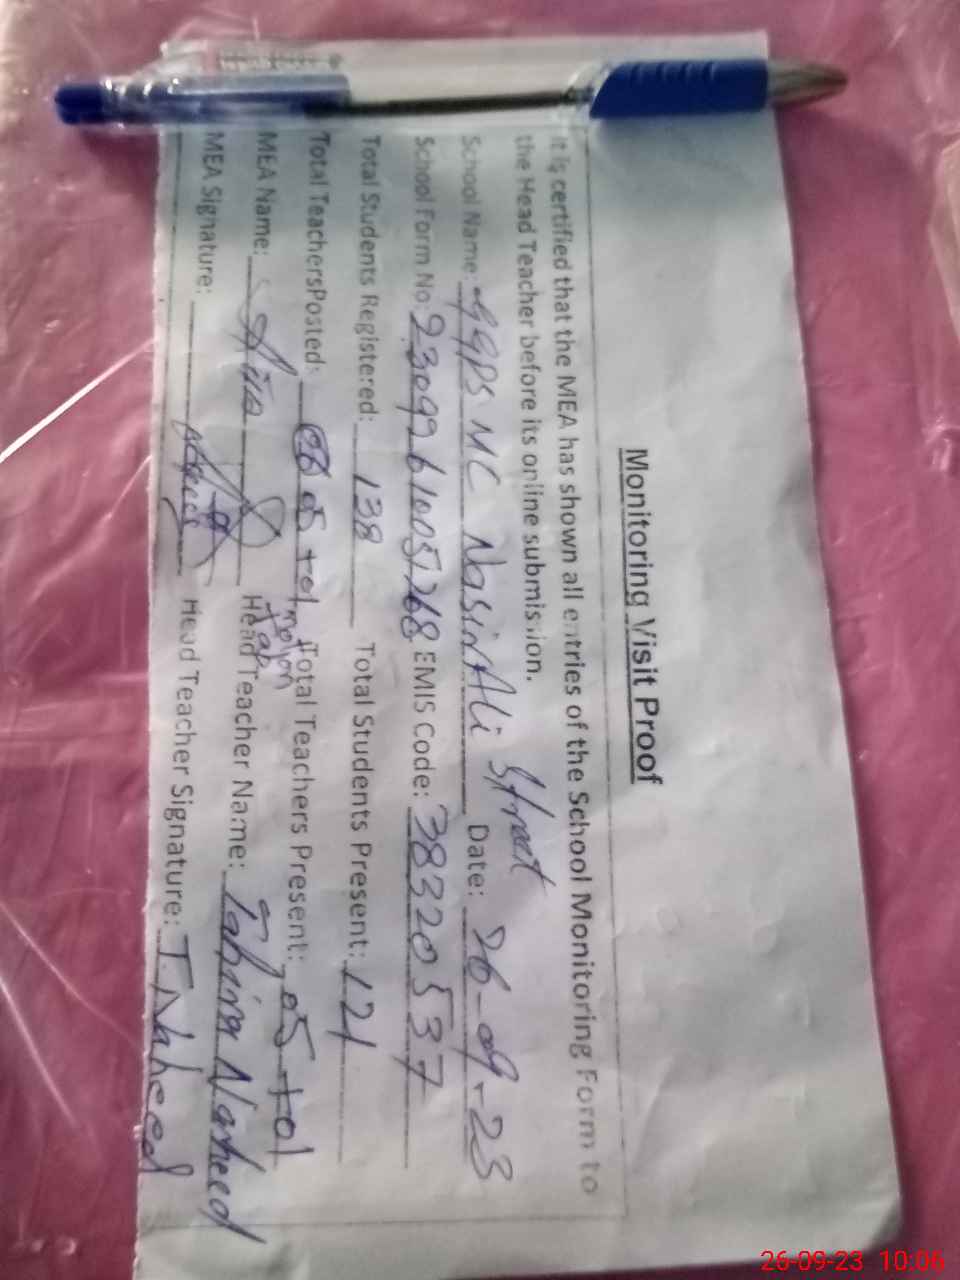 Monitoring Visit Proof
It is certified that the MEA has shown all entries of the School Monitoring Form to
the Head Teacher before its online submission.
School Name: GGPS MC Nasir Ali Street Date: 26-09-23
School Form No: 2309261005268 EMIS Code: 38320537
Total Students Registered: 138 Total Students Present: 121
Total TeachersPosted: 05 +01 Total Teachers Present: 05 +01
MEA Name: Head Teacher Name: Tahira Naheed
MEA Signature: Head Teacher Signature: T.Naheed
26-09-23 10:06